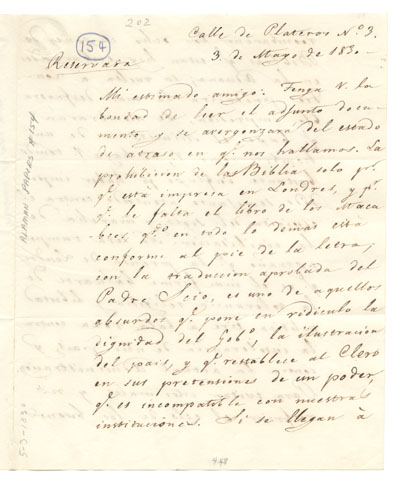 202
154
Calle de Plateros Nº 3.
3 de Mayo de 1830
Reservada
Mi estimado amigo: Tenga V. la
bondad de leer el adjunto docu-
mento y se avergonzará del estado
de atraso en qº nos hallamos. La
prohibicion de la Biblia solo pr.
qº está impresa en Londres, y pr.
qº le falta el libro de los Maca
bees, qº en todo lo demas está
conforme al pie de la letra,
con la traduccion aprobada del
Padre Scio, es uno de aquellos
absurdos qº pone en ridiculo la
dignidad del Gobº, la ilustracion
del pais, y qº restablese al Clero
en sus pretensiones de un poder,
qº es incompatible con nuestras
instituciones. Si se llegan à
ALAMAN PAPERS #154
5-3-1830